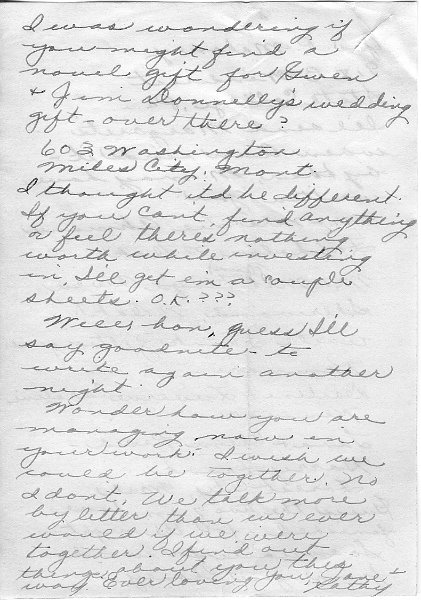 I was wondering if
you might find a
novel gift for Gwen
+ Jim Donnelly's wedding
gift - over there?
603 Washington
Miles City, Mont.
I thought it'd be different.
If you can't find anything
or feel there's nothing
worth while investing
in, I'll get 'em a couple
sheets. O.K.???
Well, hon, guess I'll
say goodnite - to
write again another
night.
Wonder how you are
managing now in
your work. I wish we
could be together. No
I don't. We talk more
by letter than we ever
would if we were
together. I find out
things about you this
way. Ever loving you, &
Kathy